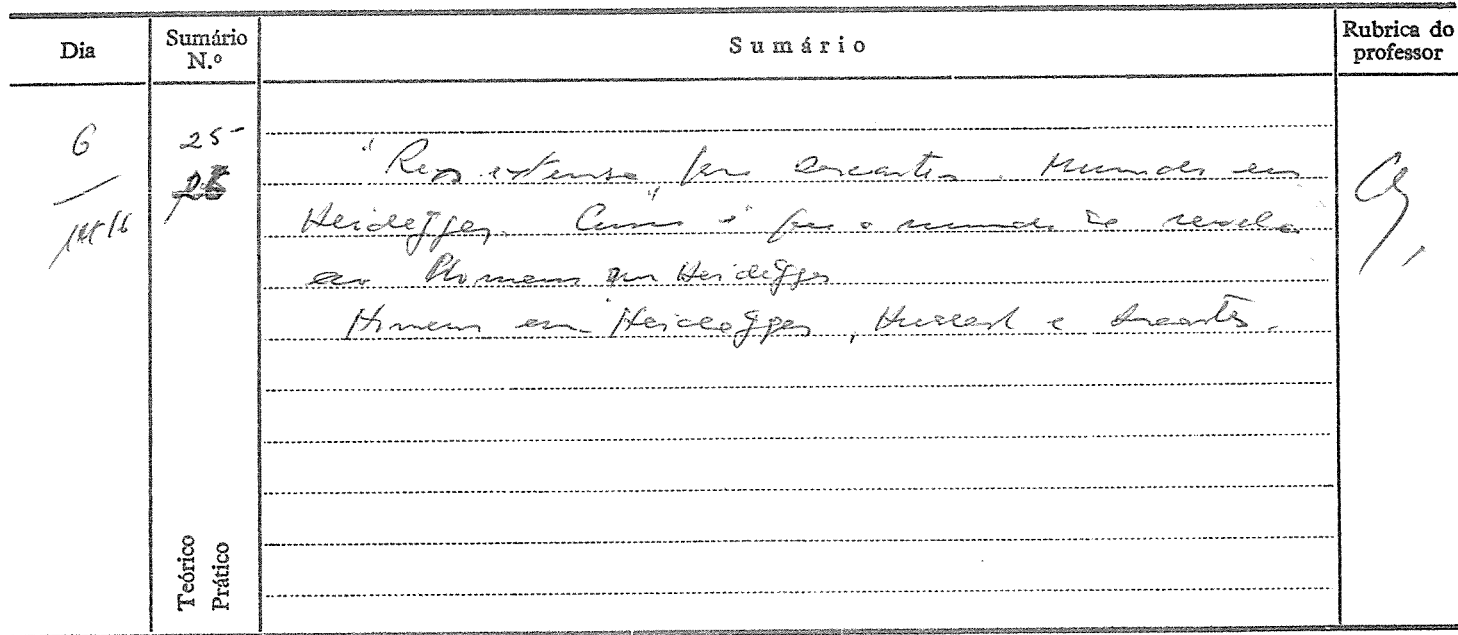 Dia Sumário N.º Sumário Rubrica do professor
6 25
"Res extensa" Descartes. Mundo em
Heidegger. Como é que o mundo se revela
ao Homem em Heidegger
Homem em Heidegger, Husserl e Descartes.
Teórico
Prático